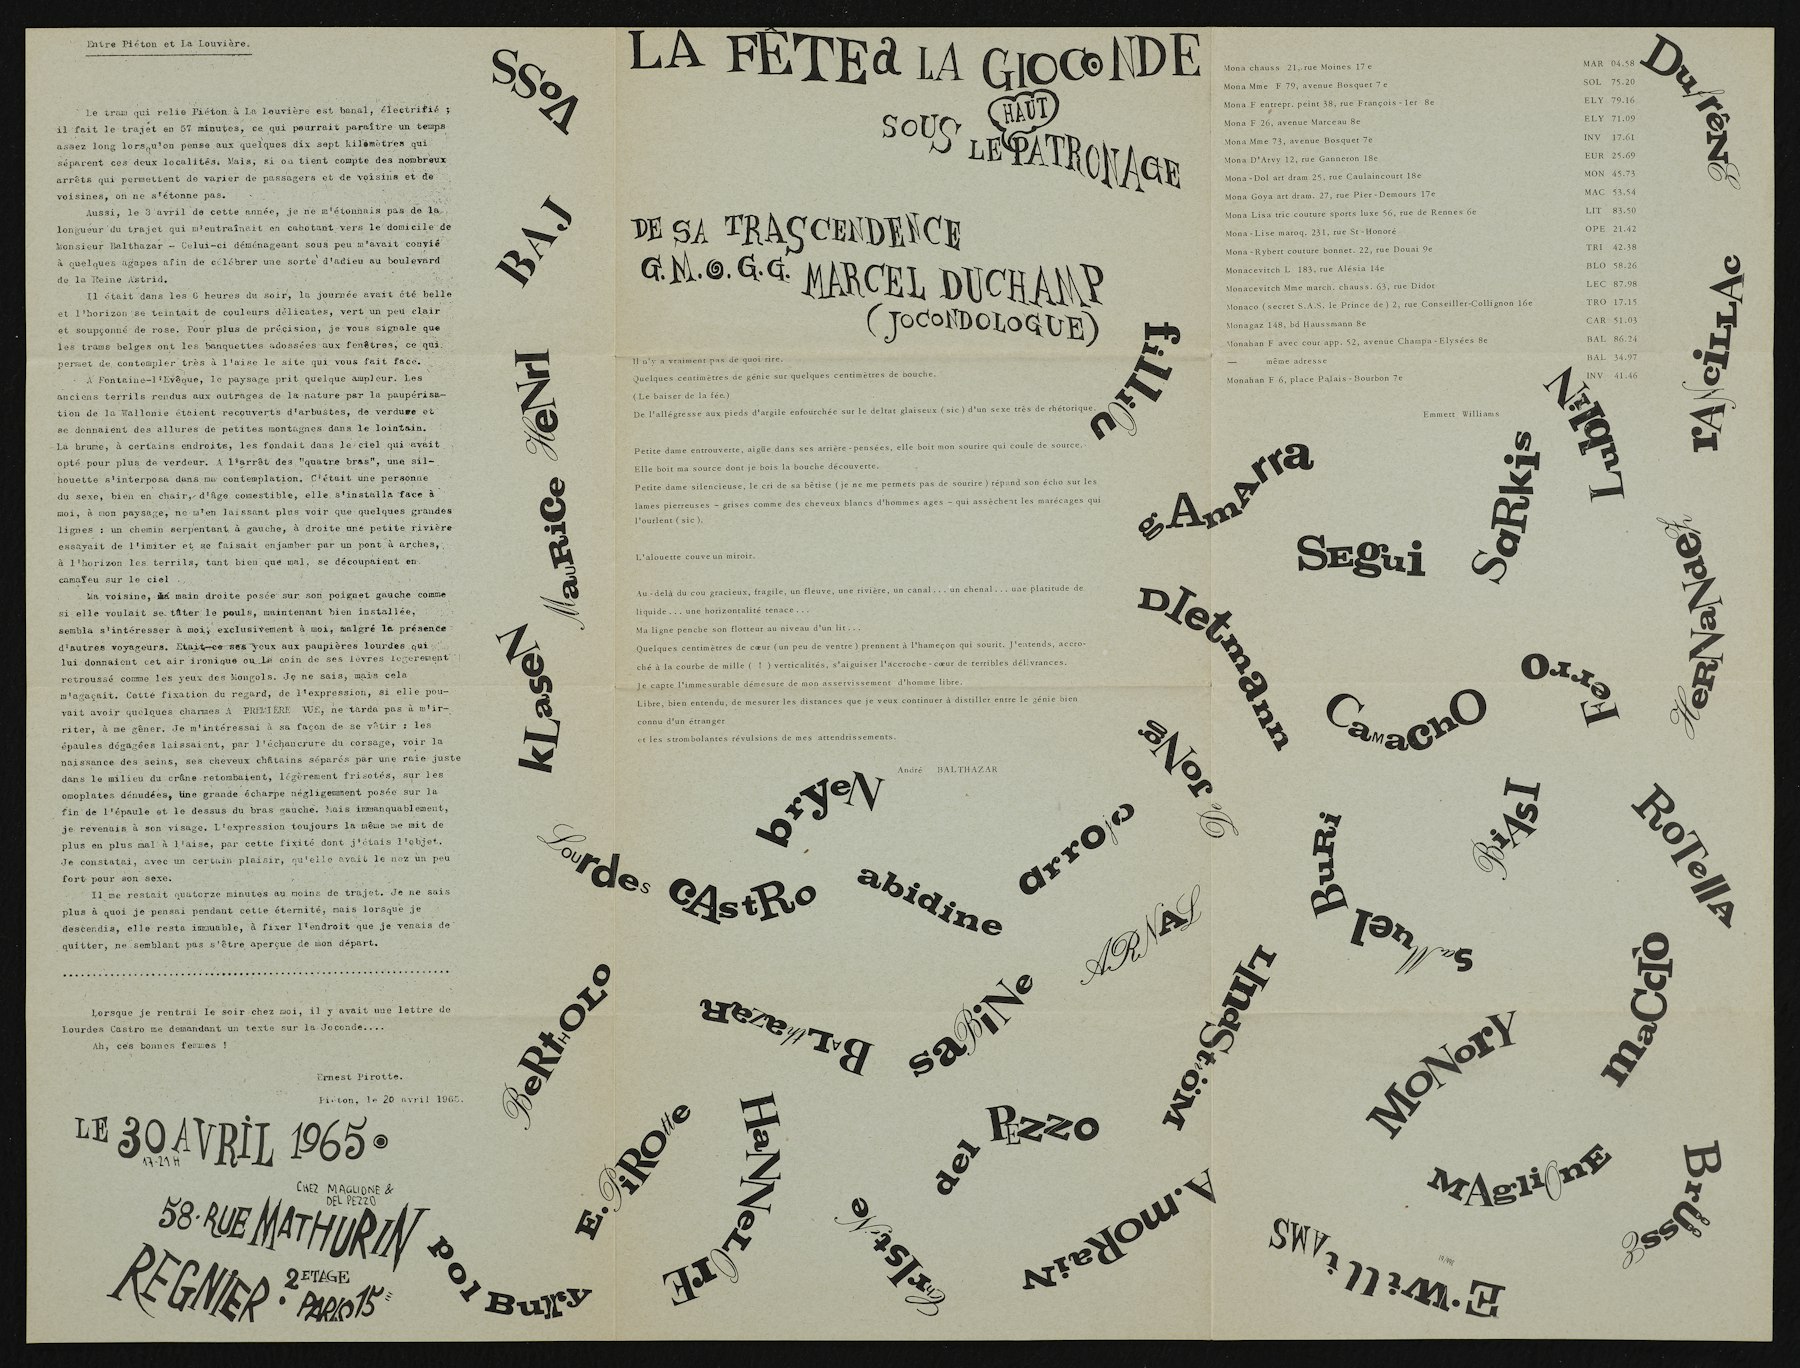 Entre Piéton et La Louvière.
Le tram qui relie Piéton à La Louvière est banal, électrifié ;
il fait le trajet en 57 minutes, ce qui pourrait paraître un temps
assez long lorsqu'on pense aux quelques dix sept kilomètres qui
séparent ces deux localités. Mais, si on tient compte des nombreux
arrêts qui permettent de varier de passagers et de voisins et de
voisines, on ne s'étonne pas.
Aussi, le 3 avril de cette année, je ne m'étonnais pas de la
longueur du trajet qui m'entraînait en cahotant vers le domicile de
Monsieur Balthazar - Celui-ci déménageant sous peu m'avait convié
à quelques agapes afin de célébrer une sorte d'adieu au boulevard
de la Reine Astrid.
Il était dans les 6 heures du soir, la journée avait été belle
et l'horizon se teintait de couleurs délicates, vert un peu clair
et soupçonné de rose. Pour plus de précision, je vous signale que
les trams belges ont les banquettes adossées aux fenêtres, ce qui
permet de contempler très à l'aise le site qui vous fait face.
A Fontaine-l'Evêque, le paysage prit quelque ampleur. Les
anciens terrils rendus aux outrages de la nature par la paupérisa-
tion de la Wallonie étaient recouverts d'arbustes, de verdure et
se donnaient des allures de petites montagnes dans le lointain.
La brume, à certains endroits, les fondait dans le ciel qui avait
opté pour plus de verdeur. A l'arrêt des "quatre bras", une sil-
houette s'interposa dans ma contemplation. C'était une personne
du sexe, bien en chair, d'âge comestible, elle s'installa face à
moi, à mon paysage, ne m'en laissant plus voir que quelques grandes
lignes : un chemin serpentant à gauche, à droite une petite rivière
essayait de l'imiter et se faisait enjamber par un pont à arches,
à l'horizon les terrils, tant bien que mal, se découpaient en
camaïeu sur le ciel .
Ma voisine, la main droite posée sur son poignet gauche comme
si elle voulait se tâter le pouls, maintenant bien installée,
sembla s'intéresser à moi, exclusivement à moi, malgré la présence
d'autres voyageurs. Etait-ce ses yeux aux paupières lourdes qui
lui donnaient cet air ironique ou le coin de ses lèvres légèrement
retroussé comme les yeux des Mongols. Je ne sais, mais cela
m'agaçait. Cette fixation du regard, de l'expression, si elle pou-
vait avoir quelques charmes A PREMIERE VUE, ne tarda pas à m'ir-
riter, à me gêner. Je m'intéressai à sa façon de se vêtir : les
épaules dégagées laissaient, par l'échancrure du corsage, voir la
naissance des seins, ses cheveux châtains séparés par une raie juste
dans le milieu du crâne retombaient, légèrement frisotés, sur les
omoplates dénudées, Une grande écharpe négligemment posée sur la
fin de l'épaule et le dessus du bras gauche. Mais immanquablement,
je revenais à son visage. L'expression toujours la même me mit de
plus en plus mal à l'aise, par cette fixité dont j'étais l'objet.
Je constatai, avec un certain plaisir, qu'elle avait le nez un peu
fort pour son sexe.
Il me restait quatorze minutes au moins de trajet. Je ne sais
plus à quoi je pensai pendant cette éternité, mais lorsque je
descendis, elle resta immuable, à fixer l'endroit que je venais de
quitter, ne semblant pas s'être aperçue de mon départ.
Lorsque je rentrai le soir chez moi, il y avait une lettre de
Lourdes Castro me demandant un texte sur la Joconde....
Ah, ces bonnes femmes !
Ernest Pirotte.
Piéton, le 20 avril 1965.
LE 30 AVRIL 1965
17-21 H
CHEZ MAGLIONE &
DEL PEZZO
58 · RUE MATHURIN
REGNIER · 2 ETAGE
PARIS 15
LA FÊTE à LA GIOCONDE
SOUS LE HAUT PATRONAGE
DE SA TRASCENDENCE
G.M.O.G.G. MARCEL DUCHAMP
(JOCONDOLOGUE)
Il n'y a vraiment pas de quoi rire.
Quelques centimètres de génie sur quelques centimètres de bouche.
(Le baiser de la fée.)
De l'allégresse aux pieds d'argile enfourchée sur le deltat glaiseux (sic) d'un sexe très de rhétorique.
Petite dame entrouverte, aigüe dans ses arrière-pensées, elle boit mon sourire qui coule de source.
Elle boit ma source dont je bois la bouche découverte.
Petite dame silencieuse, le cri de sa bêtise (je ne me permets pas de sourire) répand son écho sur les
lames pierreuses - grises comme des cheveux blancs d'hommes agés - qui assèchent les marécages qui
l'ourlent (sic).
L'alouette couve un miroir.
Au-delà du cou gracieux, fragile, un fleuve, une rivière, un canal... un chenal... une platitude de
liquide... une horizontalité tenace...
Ma ligne penche son flotteur au niveau d'un lit...
Quelques centimètres de cœur (un peu de ventre) prennent à l'hameçon qui sourit. J'entends, accro-
ché à la courbe de mille ( ! ) verticalités, s'aiguiser l'accroche-cœur de terribles délivrances.
Je capte l'immesurable démesure de mon asservissement d'homme libre.
Libre, bien entendu, de mesurer les distances que je veux continuer à distiller entre le génie bien
connu d'un étranger
et les strombolantes révulsions de mes attendrissements.
André BALTHAZAR
Mona chauss 21, rue Moines 17e MAR 04.58
Mona Mme F 79, avenue Bosquet 7e SOL 75.20
Mona F entrepr. peint 38, rue François-1er 8e ELY 79.16
Mona F 26, avenue Marceau 8e ELY 71.09
Mona Mme 73, avenue Bosquet 7e INV 17.61
Mona D'Arvy 12, rue Ganneron 18e EUR 25.69
Mona-Dol art dram 25, rue Caulaincourt 18e MON 45.73
Mona Goya art dram. 27, rue Pier-Demours 17e MAC 53.54
Mona Lisa tric couture sports luxe 56, rue de Rennes 6e LIT 83.50
Mona-Lise maroq. 231, rue St-Honoré OPE 21.42
Mona-Rybert couture bonnet. 22, rue Douai 9e TRI 42.38
Monacevitch L 183, rue Alésia 14e BLO 58.26
Monacevitch Mme march. chauss. 63, rue Didot LEC 87.98
Monaco (secret S.A.S. le Prince de) 2, rue Conseiller-Collignon 16e TRO 17.15
Monagaz 148, bd Haussmann 8e CAR 51.03
Monahan F avec cour app. 52, avenue Champs-Elysées 8e BAL 86.24
— même adresse BAL 34.97
Monahan F 6, place Palais-Bourbon 7e INV 41.46
Emmett Williams
Voss
BAJ
MauRiCe HeNrI
kLaseN
Lourdes cAstRo
BeRtHOLO
E. PiROtte
pol BuRy
bryeN
abidine
arroyo
ARNAL
BALthazaR
saBiNe
HaNNeLOrE
ChrIstiNe
del PEzzO
A.moRaiN
fiLLiOU
gAmArra
Segui
SaRkis
LubliN
Dufrêne
rANciLLAc
HeRNaNdeZ
DIetmann
De JoNg
CaMachO
Ferro
BuRi
BiAsI
saMuel
RoTellA
LjundStröm
MoNory
maCcIò
MAgliOnE
BrüsSE
E.WilliAMS